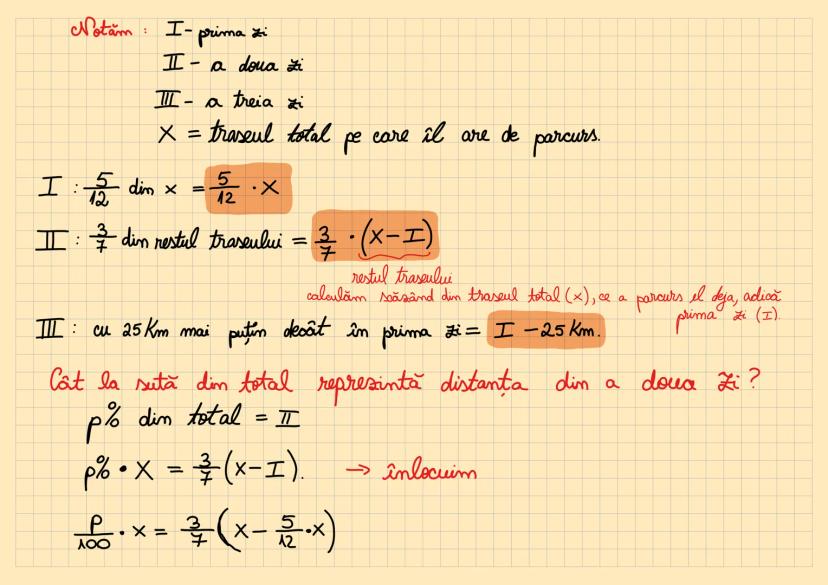 Notăm : I - prima zi
II - a doua zi
III - a treia zi
X = traseul total pe care îl are de parcurs.
I : 5/12 din x = 5/12 · X
II : 3/7 din restul traseului = 3/7 · (X-I)
restul traseului
calculăm scăzând din traseul total (x), ce a parcurs el deja, adică
prima zi (I).
III : cu 25 Km mai puțin decât în prima zi = I - 25 Km.
Cât la sută din total reprezintă distanța din a doua zi?
p% din total = II
p% · X = 3/7 (X-I). → înlocuim
p/100 · x = 3/7 (X - 5/12 · X)